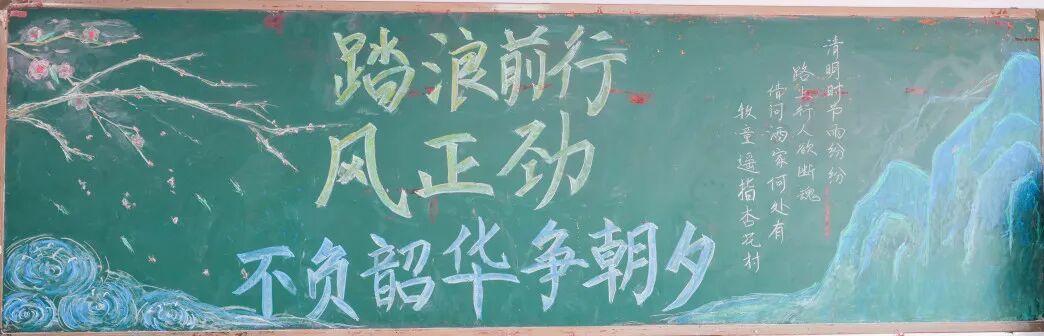 踏浪前行
风正劲
不负韶华争朝夕
清明时节雨纷纷
路上行人欲断魂
借问酒家何处有
牧童遥指杏花村